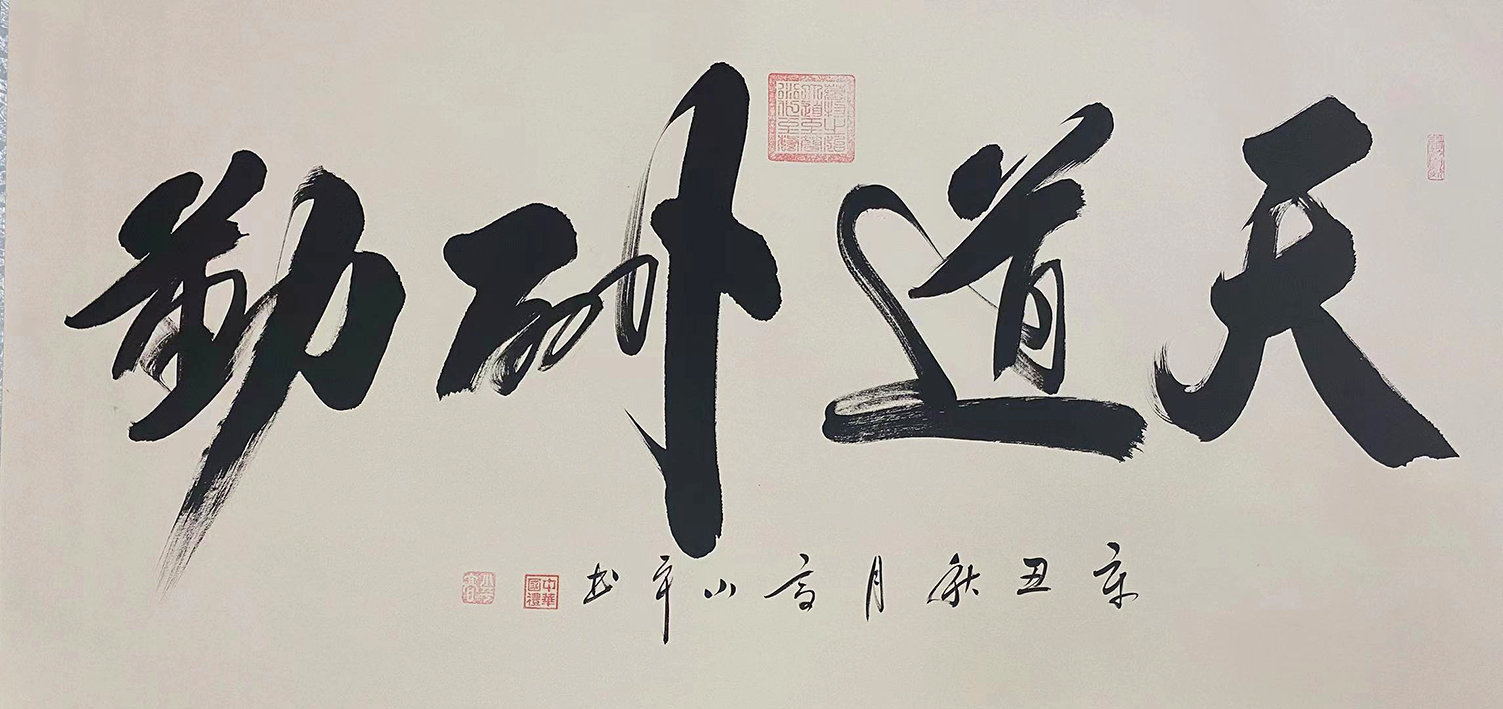 天道酬勤
辛丑秋月高山平书
中華國禮